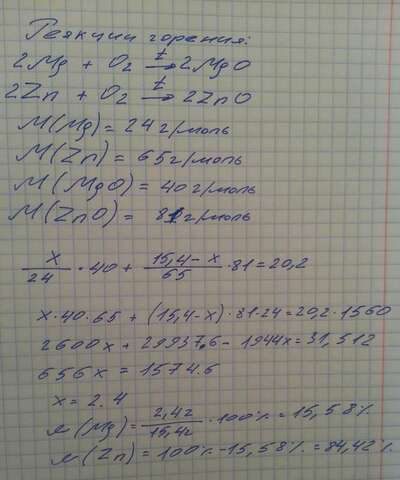 Реякции горения:
2Mg + O₂ →t 2MgO
2Zn + O₂ →t 2ZnO
M(Mg) = 24 г/моль
M(Zn) = 65 г/моль
M(MgO) = 40 г/моль
M(ZnO) = 81 г/моль
x/24 · 40 + 15,4-x/65 · 81 = 20,2
x·40·65 + (15,4-x)·81·24 = 20,2·1560
2600x + 29937,6 - 1944x = 31,512
656x = 1574.6
x = 2.4
м(Mg) = 2,4г/15,4г · 100% = 15,58%
м(Zn) = 100% - 15,58% = 84,42%